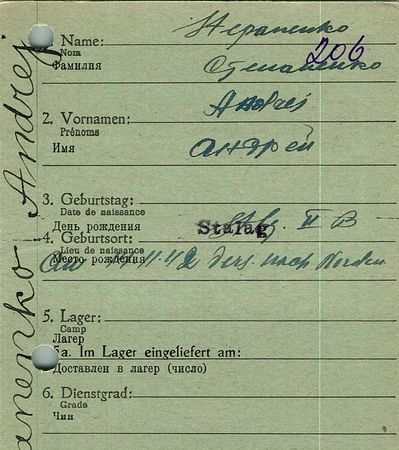 1. Name: Stepanenko
Nom
206
Фамилия Степаненко
Andrej
2. Vornamen:
Prénoms
Имя Андрей
3. Geburtstag:
Date de naissance
День рождения Stalag II B
4. Geburtsort:
Lieu de naissance
Место рождения
11.42 vers. nach Norden
5. Lager:
Camp
Лагерь
5a. Im Lager eingeliefert am:
Доставлен в лагерь (число)
6. Dienstgrad:
Grade
Чин
anenko Andrej